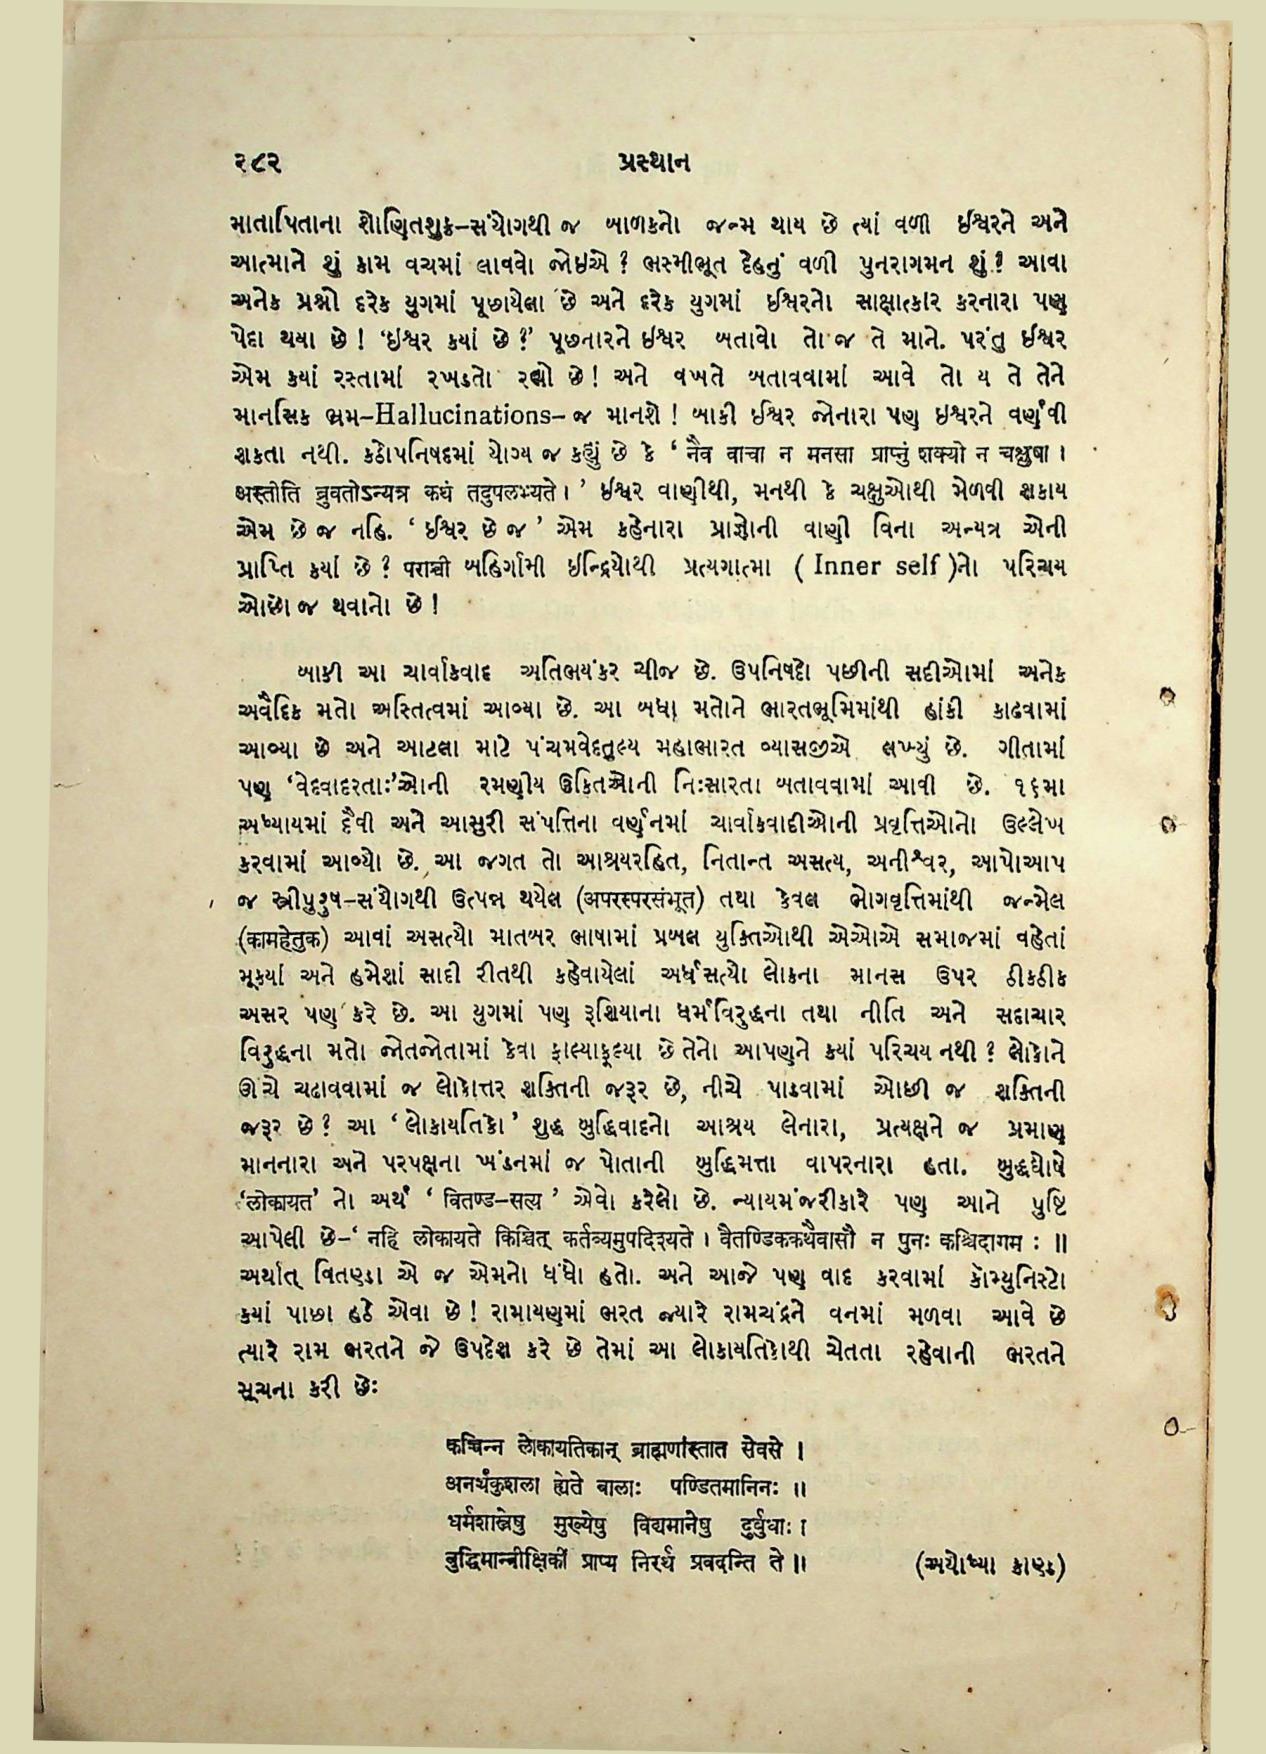 ૨૮૨ પ્રસ્થાન
માતાપિતાના શોણિતશુક્ર-સંયોગથી જ બાળકનો જન્મ થાય છે ત્યાં વળી ઈશ્વરને અને
આત્માને શું કામ વચમાં લાવવો જોઇએ ? ભસ્મીભૂત દેહનું વળી પુનરાગમન શું ? આવા
અનેક પ્રશ્નો દરેક યુગમાં પૂછાયેલા છે અને દરેક યુગમાં ઈશ્વરનો સાક્ષાત્કાર કરનારા પણ
પેદા થયા છે ! ‘ઈશ્વર ક્યાં છે ?’ પૂછનારને ઈશ્વર બતાવો તો જ તે માને. પરંતુ ઈશ્વર
એમ ક્યાં રસ્તામાં રખડતો રહ્યો છે ! અને વખતે બતાવવામાં આવે તો ય તે તેને
માનસિક ભ્રમ-Hallucinations-જ માનશે ! બાકી ઈશ્વર જોનારા પણ ઇશ્વરને વર્ણવી
શકતા નથી. કઠોપનિષદમાં યોગ્ય જ કહ્યું છે કે ‘ नैव वाचा न मनसा प्राप्नुं शक्यो न चक्षुषा ।
अस्तीति ब्रुवतोऽन्यत्र कथं तदुपलभ्यते । ’ ઈશ્વર વાણીથી, મનથી કે ચક્ષુઓથી મેળવી શકાય
એમ છે જ નહિ. ‘ ઈશ્વર છે જ ’ એમ કહેનારા પ્રાજ્ઞોની વાણી વિના અન્યત્ર એની
પ્રાપ્તિ ક્યાં છે ? पराञ्ची બહિર્ગામી ઇન્દ્રિયોથી પ્રત્યગાત્મા ( Inner self )નો પરિચય
ઓછો જ થવાનો છે !
બાકી આ ચાર્વાકવાદ અતિભયંકર ચીજ છે. ઉપનિષદો પછીની સદીઓમાં અનેક
અવૈદિક મતો અસ્તિત્વમાં આવ્યા છે. આ બધા મતોને ભારતભૂમિમાંથી હાંકી કાઢવામાં
આવ્યા છે અને આટલા માટે પંચમવેદતુલ્ય મહાભારત વ્યાસજીએ લખ્યું છે. ગીતામાં
પણ ‘વેદવાદરતાઃ’ઓની રમણીય ઉક્તિઓની નિઃસારતા બતાવવામાં આવી છે. ૧૬મા
અધ્યાયમાં દૈવી અને આસુરી સંપત્તિના વર્ણનમાં ચાર્વાકવાદીઓની પ્રવૃત્તિઓનો ઉલ્લેખ
કરવામાં આવ્યો છે. આ જગત તો આશ્રયરહિત, નિતાન્ત અસત્ય, અનીશ્વર, આપોઆપ
જ સ્ત્રીપુરુષ-સંયોગથી ઉત્પન્ન થયેલ (अपरस्परसंभूत) તથા કેવલ ભોગવૃત્તિમાંથી જન્મેલ
(कामहेतुक) આવાં અસત્યો માતબર ભાષામાં પ્રબલ યુક્તિઓથી એઓએ સમાજમાં વહેતાં
મૂક્યાં અને હમેશાં સાદી રીતથી કહેવાયેલાં અર્ધસત્યો લોકના માનસ ઉપર ઠીકઠીક
અસર પણ કરે છે. આ યુગમાં પણ રૂશિયાના ધર્મવિરુદ્ધના તથા નીતિ અને સદાચાર
વિરુદ્ધના મતો જોતજોતામાં કેવા ફાલ્યાફૂલ્યા છે તેનો આપણને ક્યાં પરિચય નથી ? લોકોને
ઊંચે ચઢાવવામાં જ લોકોત્તર શક્તિની જરૂર છે, નીચે પાડવામાં ઓછી જ શક્તિની
જરૂર છે ? આ ‘ લોકાયતિકો ’ શુદ્ધ બુદ્ધિવાદનો આશ્રય લેનારા, પ્રત્યક્ષને જ પ્રમાણ
માનનારા અને પરપક્ષના ખંડનમાં જ પોતાની બુદ્ધિમત્તા વાપરનારા હતા. બુદ્ધઘોષે
‘लोकायत’ નો અર્થ ‘ वितण्ड-सत्य ’ એવો કરેલો છે. ન્યાયમંજરીકારે પણ આને પુષ્ટિ
આપેલી છે-‘ नहि लोकायते किञ्चित् कर्तव्यमुपदिश्यते । वैतण्डिककथैवासौ न पुनः कश्चिदागम : ॥
અર્થાત્ વિતણ્ડા એ જ એમનો ધંધો હતો. અને આજે પણ વાદ કરવામાં કોમ્યુનિસ્ટો
ક્યાં પાછા હઠે એવા છે ! રામાયણમાં ભરત જ્યારે રામચંદ્રને વનમાં મળવા આવે છે
ત્યારે રામ ભરતને જે ઉપદેશ કરે છે તેમાં આ લોકાયતિકોથી ચેતતા રહેવાની ભરતને
સૂચના કરી છેઃ
कच्चिन्न लोकायतिकान् ब्राह्मणांस्तात सेवसे ।
अनर्थकुशला ह्येते बालाः पण्डितमानिनः ॥
धर्मशास्त्रेषु मुख्येषु विद्यमानेषु दुर्बुधाः ।
बुद्धिमान्वीक्षिकीं प्राप्य निरर्थं प्रवदन्ति ते ॥ (અયોધ્યા કાણ્ડ)